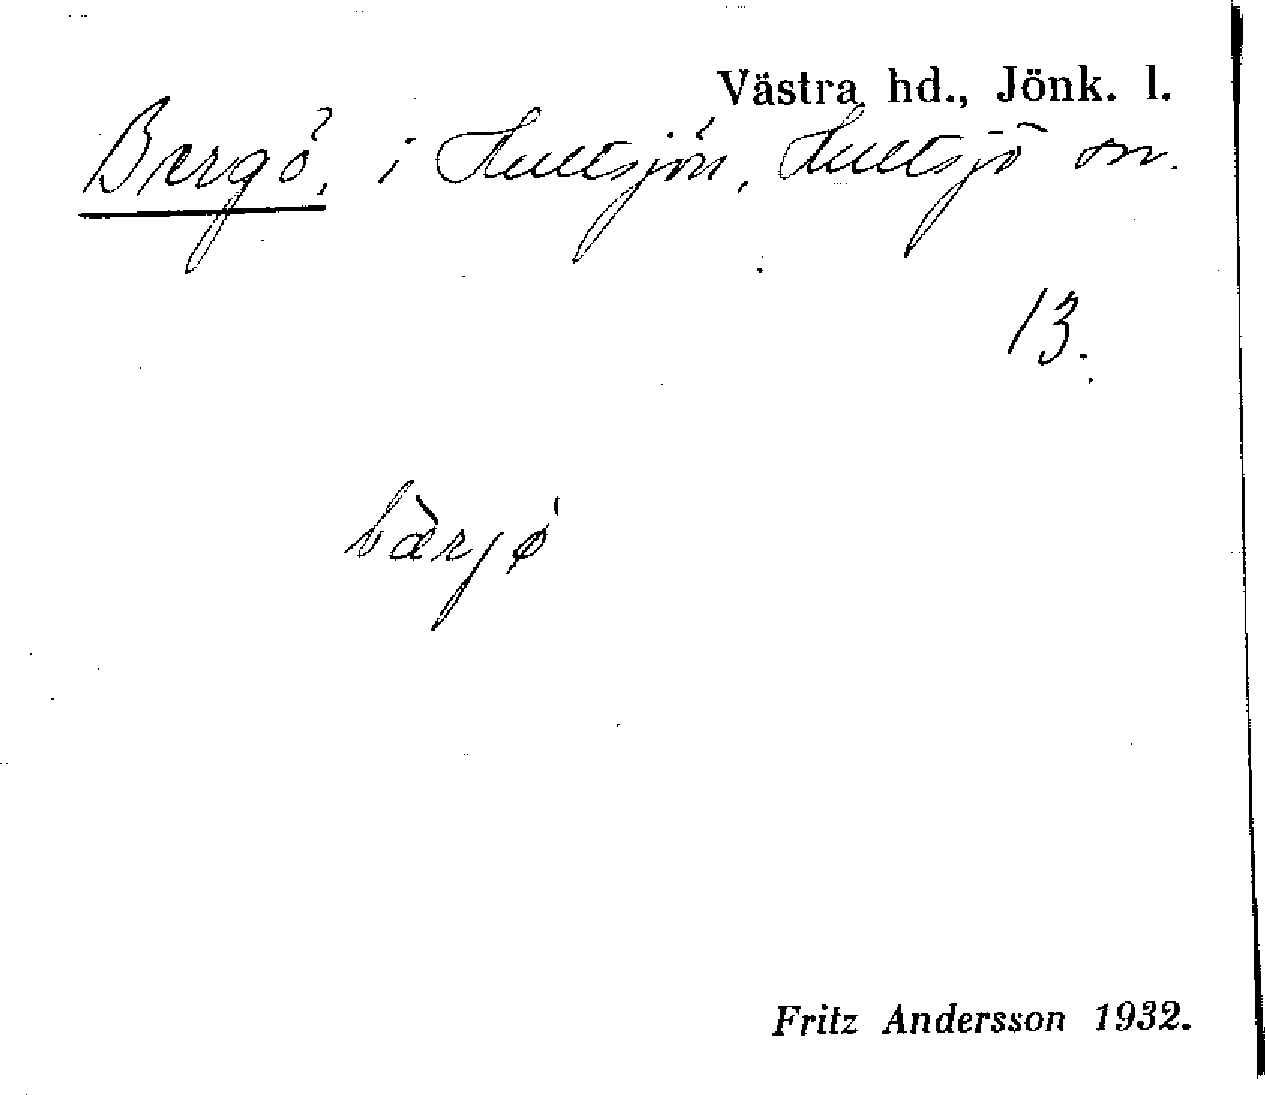 Västra hd., Jönk. l.
Bergö, i Hultsjön, Hultsjö sn.
13.
bærjø
Fritz Andersson 1932.